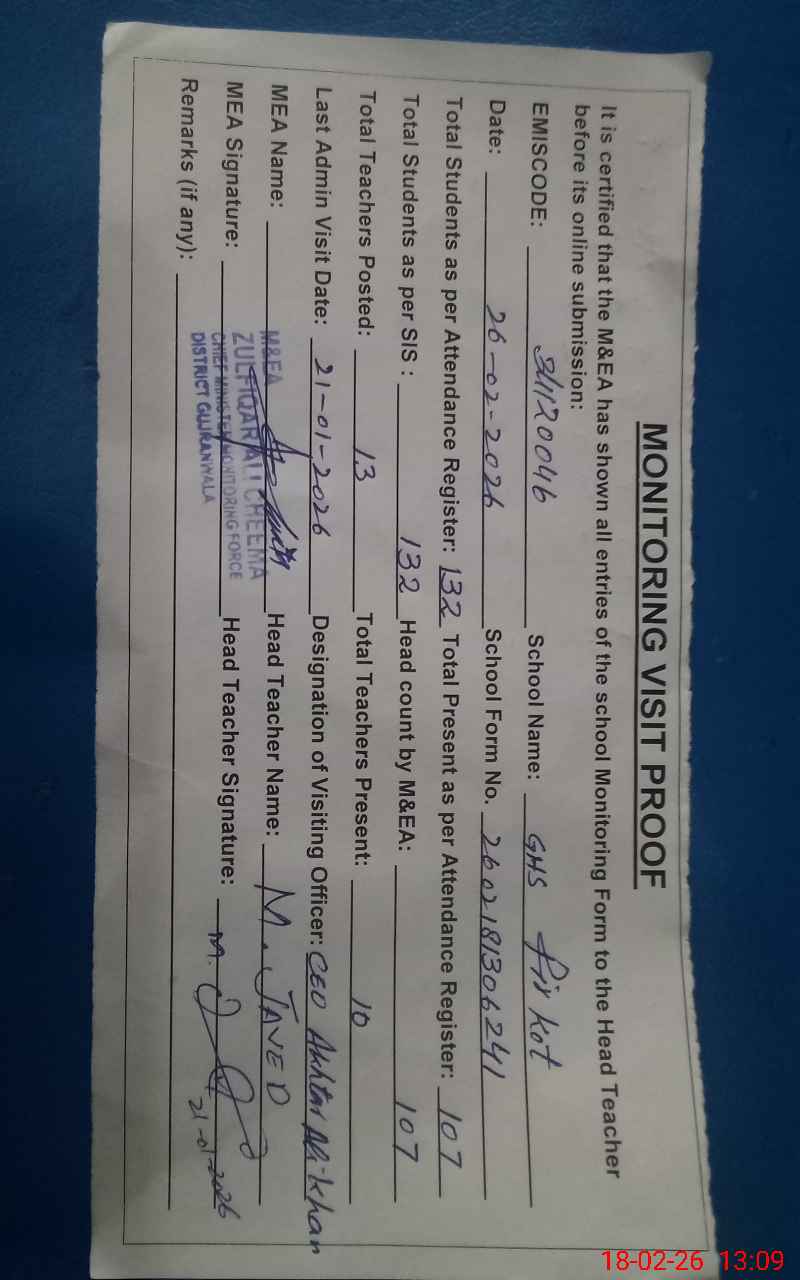 MONITORING VISIT PROOF
It is certified that the M&EA has shown all entries of the school Monitoring Form to the Head Teacher
before its online submission:
EMISCODE: 34120046 School Name: GHS Pir Kot
Date: 26-02-2026 School Form No. 2602181306241
Total Students as per Attendance Register: 132 Total Present as per Attendance Register: 107
Total Students as per SIS : 132 Head count by M&EA: 107
Total Teachers Posted: 13 Total Teachers Present: 10
Last Admin Visit Date: 21-01-2026 Designation of Visiting Officer: CEO Akhtar Ali Khan
MEA Name: Head Teacher Name: M. JAVED
MEA Signature: Head Teacher Signature: M.
21-01-2026
M&EA
ZULFIQAR ALI CHEEMA
CHIEF MINISTER MONITORING FORCE
DISTRICT GUJRANWALA
Remarks (if any):
18-02-26 13:09